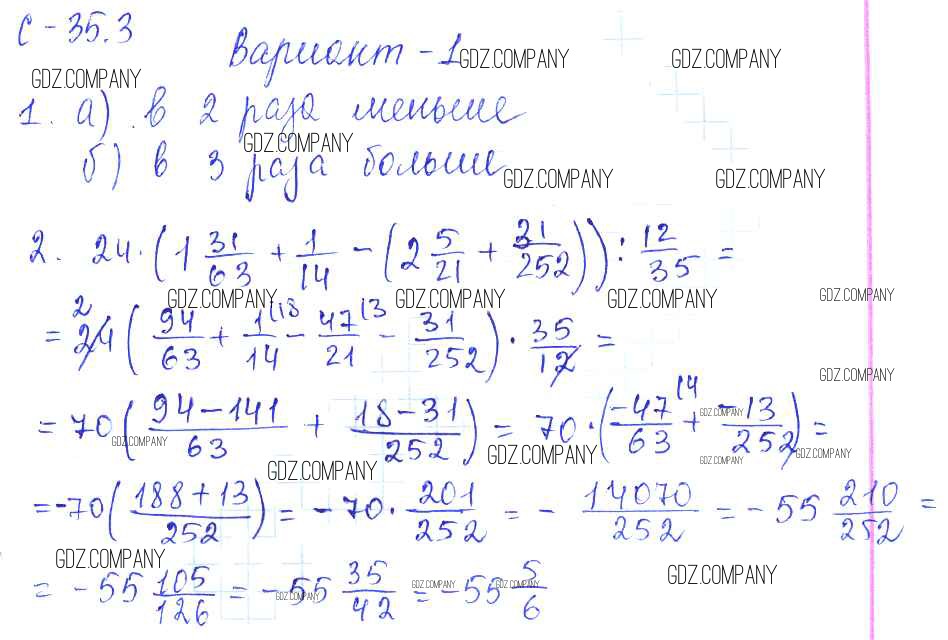 С - 35.3
Вариант - 1 GDZ.COMPANY GDZ.COMPANY
GDZ.COMPANY
1. а) в 2 раза меньше
GDZ.COMPANY
б) в 3 раза больше
GDZ.COMPANY GDZ.COMPANY
2. 24 · (1 31/63 + 1/14 - (2 5/21 + 31/252)) : 12/35 =
GDZ.COMPANY GDZ.COMPANY GDZ.COMPANY GDZ.COMPANY
= 2 24 (94/63 + 1(18/14 - 47(3/21 - 31/252) · 35/12 =
GDZ.COMPANY
= 70 (94-141/63 + 18-31/252) = 70 · (-47(4/63 + -13/252) =
GDZ.COMPANY GDZ.COMPANY GDZ.COMPANY GDZ.COMPANY GDZ.COMPANY
GDZ.COMPANY
= -70 (188+13/252) = -70 · 201/252 = - 14070/252 = -55 210/252 =
GDZ.COMPANY
= -55 105/126 = -55 35/42 = -55 5/6
GDZ.COMPANY GDZ.COMPANY GDZ.COMPANY GDZ.COMPANY